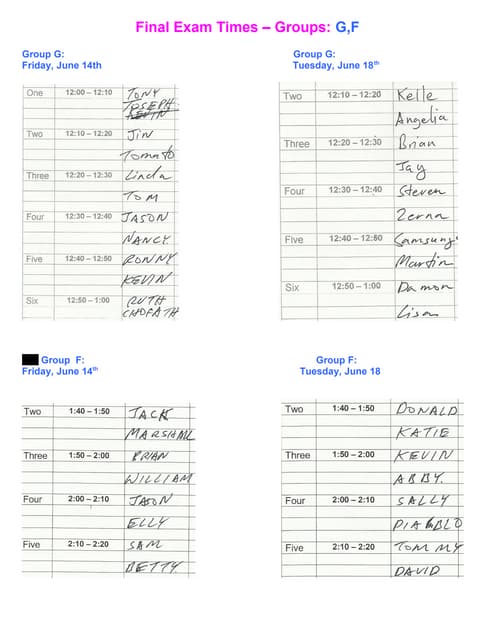 Final Exam Times – Groups: G,F
Group G:
Friday, June 14th
One 12:00 – 12:10 TONY
JOSEPH
KEVIN
Two 12:10 – 12:20 JIN
Tomato
Three 12:20 – 12:30 Linda
TOM
Four 12:30 – 12:40 JASON
NANCY
Five 12:40 – 12:50 RONNY
KEVIN
Six 12:50 – 1:00 RUTH
CHOFATH
Group G:
Tuesday, June 18th
Two 12:10 – 12:20 Kelle
Angelia
Three 12:20 – 12:30 Brian
Jay
Four 12:30 – 12:40 Steven
Zerna
Five 12:40 – 12:50 Samsung
Martin
Six 12:50 – 1:00 Damon
Lisa
Group F:
Friday, June 14th
Two 1:40 – 1:50 JACK
MARSHAL
Three 1:50 – 2:00 BRIAN
WILLIAM
Four 2:00 – 2:10 JASON
ELLY
Five 2:10 – 2:20 SAM
BETTY
Group F:
Tuesday, June 18
Two 1:40 – 1:50 DONALD
KATIE
Three 1:50 – 2:00 KEVIN
ABBY.
Four 2:00 – 2:10 SALLY
DIABLO
Five 2:10 – 2:20 TOMMY
DAVID